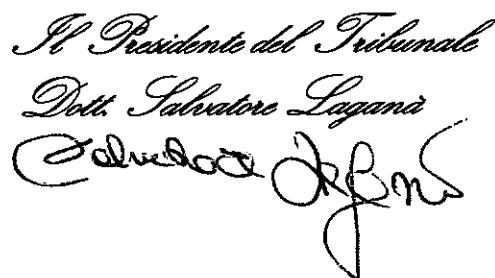 Il Presidente del Tribunale
Dott. Salvatore Laganà
Salvatore Laganà